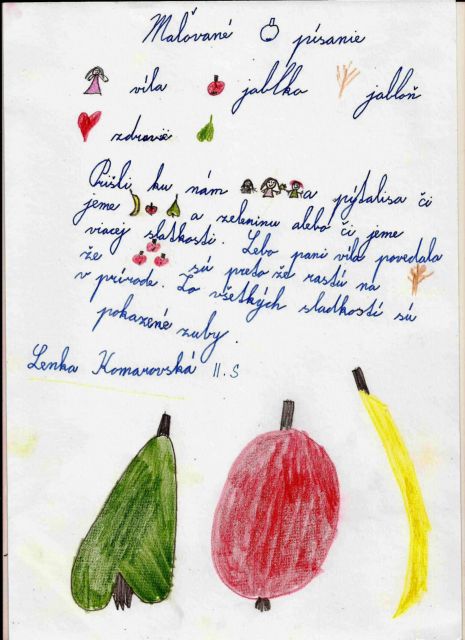 Maľované písanie
víla jabĺko jabloň
zdravie
Prišli ku nám a pýtalisa či
jeme a zeleninu alebo či jeme
viacej slatkosti. Lebo pani víla povedala
že sú preto že rastú na
v prírode. Zo všetkých sladkostí sú
pokazené zuby.
Lenka Komarovská II.S